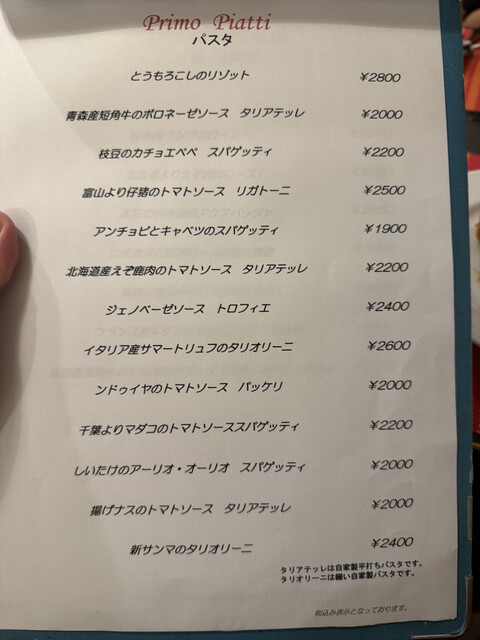 Primo Piatti
パスタ
とうもろこしのリゾット ¥2800
青森産短角牛のボロネーゼソース タリアテッレ ¥2000
枝豆のカチョエペペ スパゲッティ ¥2200
富山より仔猪のトマトソース リガトーニ ¥2500
アンチョビとキャベツのスパゲッティ ¥1900
北海道産えぞ鹿肉のトマトソース タリアテッレ ¥2200
ジェノベーゼソース トロフィエ ¥2400
イタリア産サマートリュフのタリオリーニ ¥2600
ンドゥイヤのトマトソース パッケリ ¥2000
千葉よりマダコのトマトソーススパゲッティ ¥2200
しいたけのアーリオ・オーリオ スパゲッティ ¥2000
揚げナスのトマトソース タリアテッレ ¥2000
新サンマのタリオリーニ ¥2400
タリアテッレは自家製平打ちパスタです。
タリオリーニは細い自家製パスタです。
税込み表示となっております。